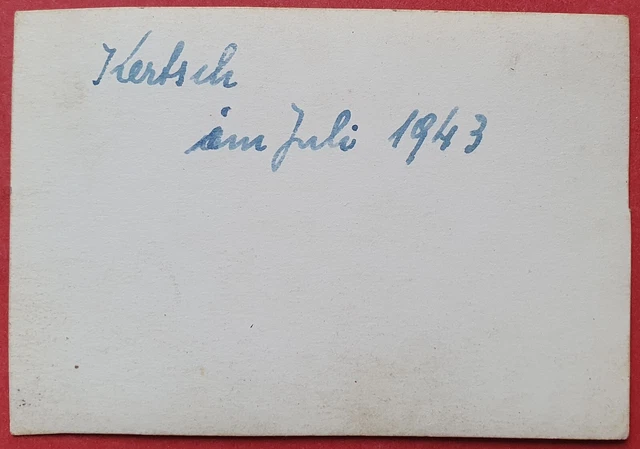 Kertsch
im Juli 1943